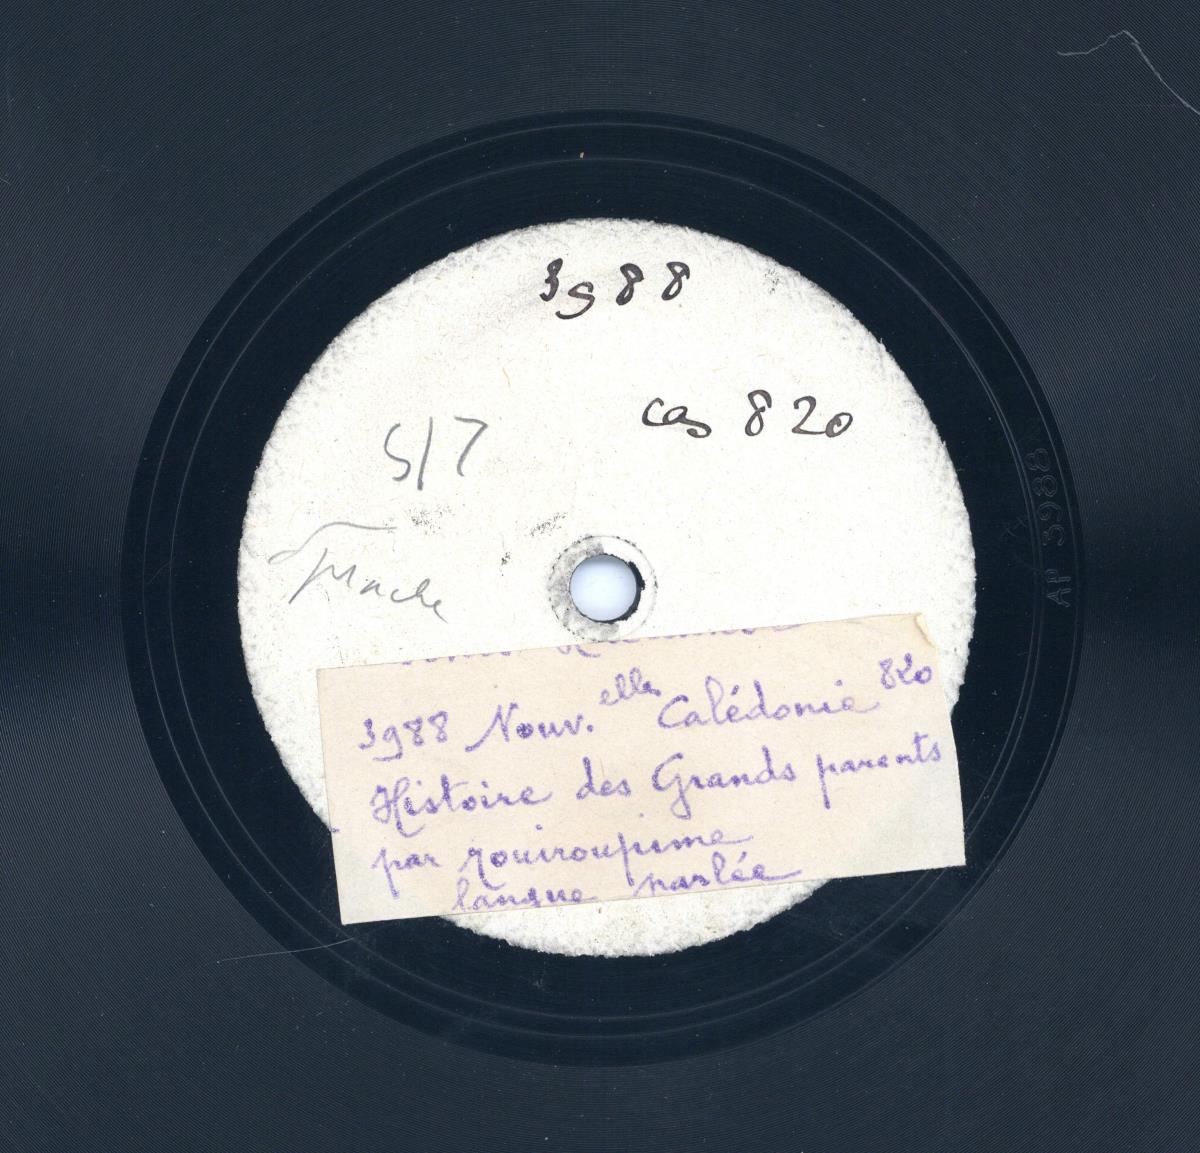 3988
cas 820
S/7
Sprache
AP 3988
3988 Nouv.elle Calédonie 820
Histoire des Grands parents
par rouiroupime
langue parlée